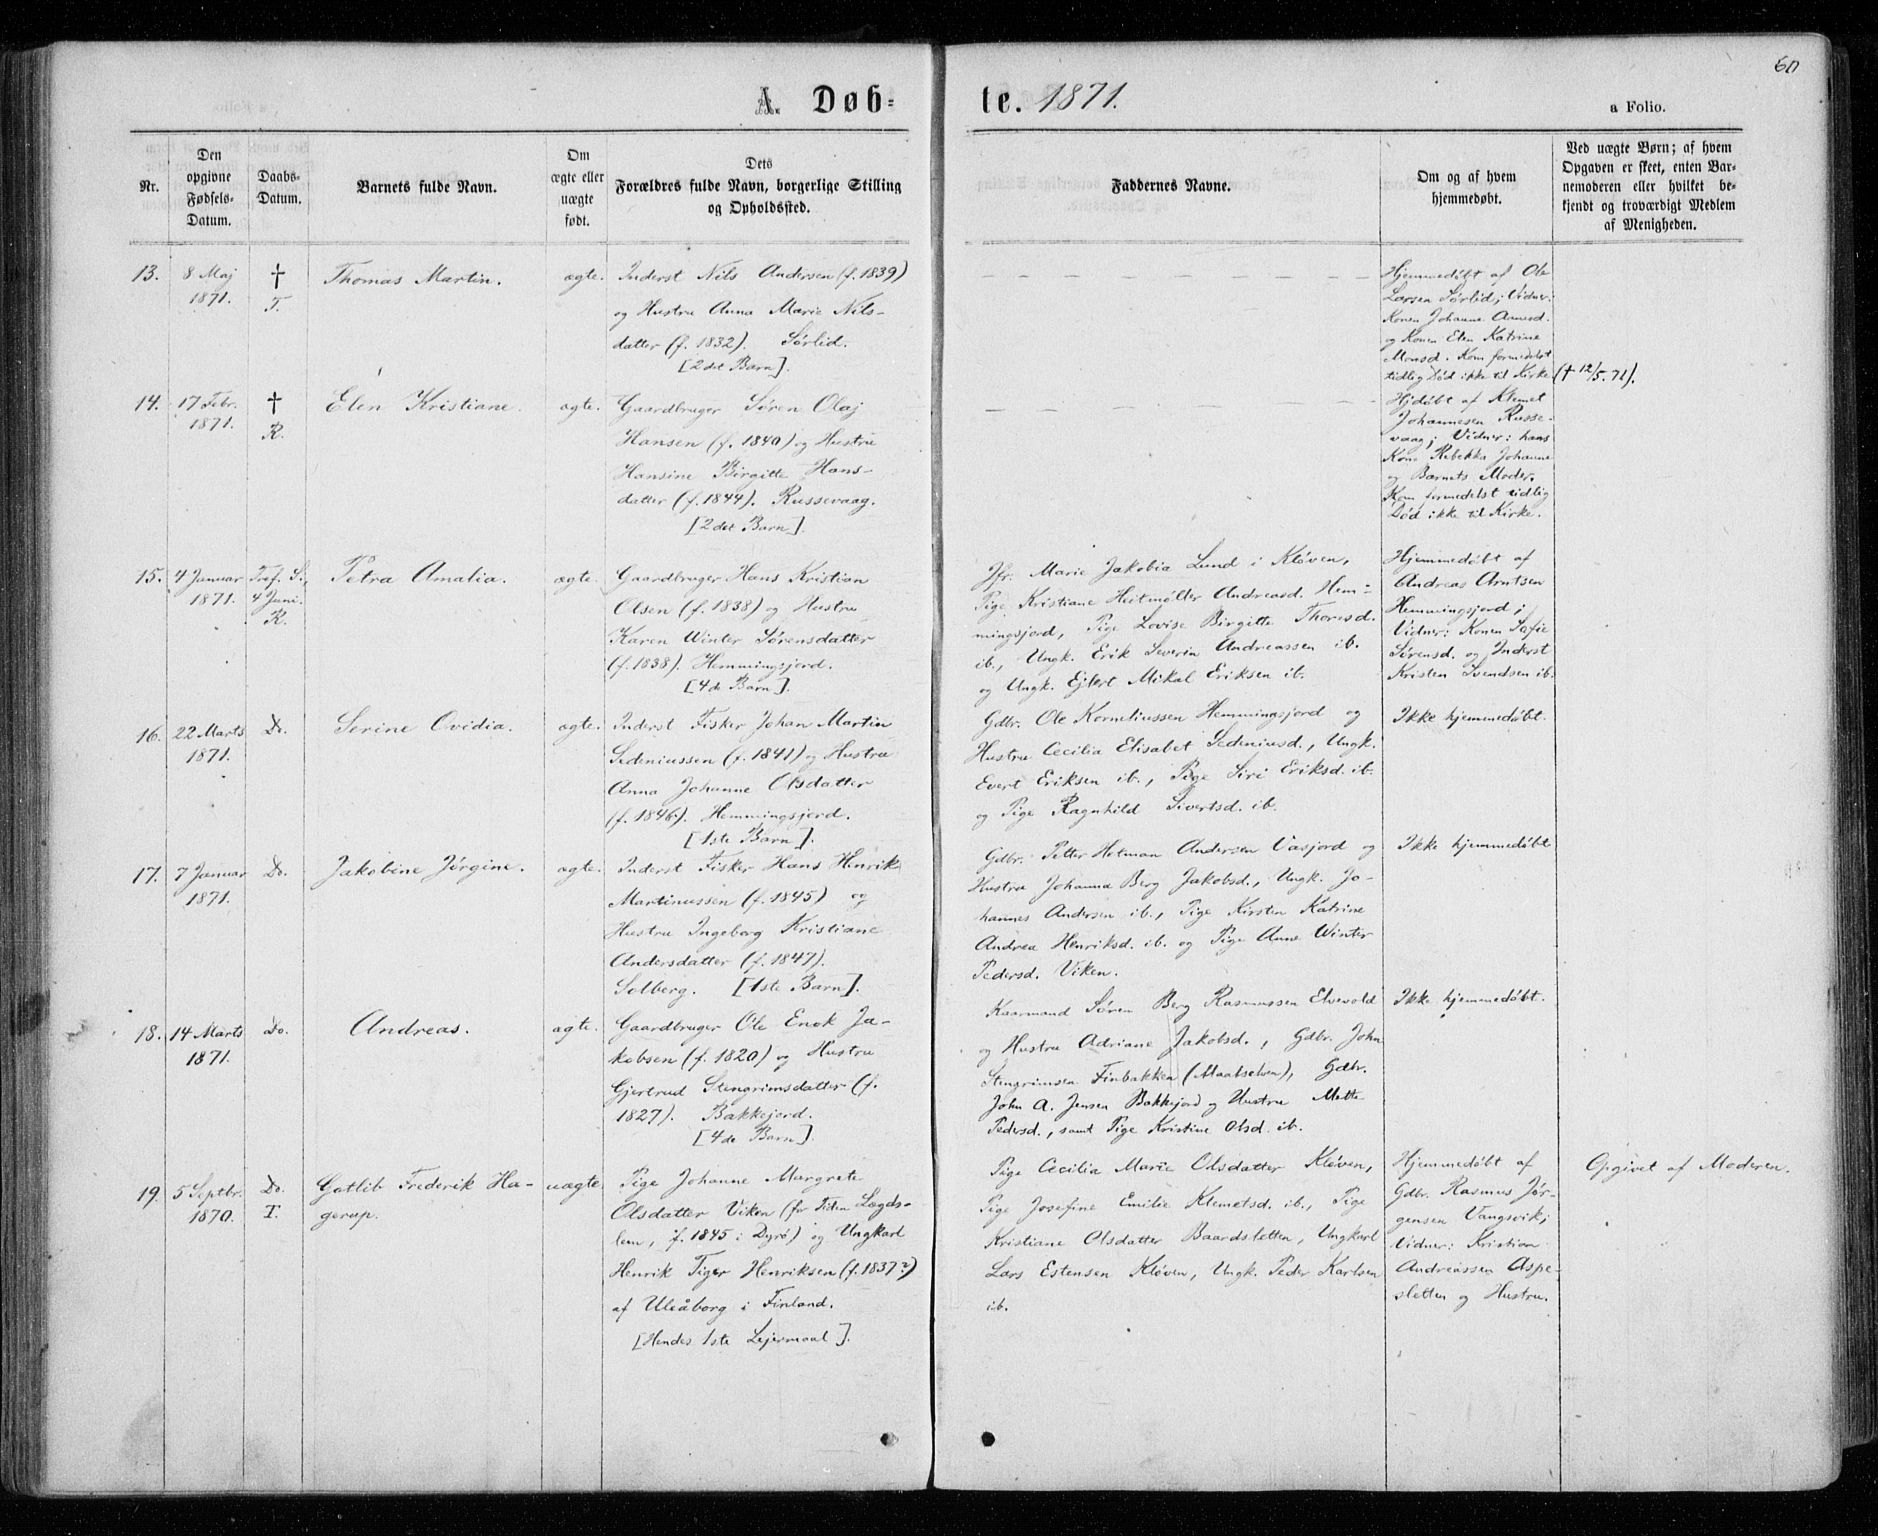 60
A. Døbte. 1871.
a Folio.
Nr.
Den opgivne Fødsels-Datum.
Daabs-Datum.
Barnets fulde Navn.
Om ægte eller uægte født.
Dets Forældres fulde Navn, borgerlige Stilling og Opholdssted.
Faddernes Navne.
Om og af hvem hjemmedøbt.
Ved uægte Børn; af hvem Opgaven er skeet, enten Barnemoderen eller hvilket bekjendt og troværdigt Medlem af Menigheden.
13.
8 Maj
1871.
†
T.
Thomas Martin.
ægte.
Inderst Nils Andersen (f. 1839)
og Hustru Anna Marie Nils-
datter (f. 1832). Sørlid.
[2det Barn].
Hjemmedøbt af Ole
Larsen Sørlid; Vidner:
Konen Johanne Aanesd.
og Konen Elen Katrine
Monsd. Kom formedelst
tidlig Død ikke til Kirke
(† 12/5. 71).
14.
17 Febr.
1871.
†
R.
Elen Kristiane.
ægte.
Gaardbruger Søren Olaj
Hansen (f. 1840) og Hustru
Hansine Birgitte Hans-
datter (f. 1844). Russevaag.
[2det Barn].
Hjdøbt af Klemet
Johannesen Russe-
vaag; Vidner: hans
Kone Rebekka Johanne
og Barnets Moder.
Kom formedelst tidlig
Død ikke til Kirke.
15.
4 Januar
1871.
Tref. S.,
4 Juni.
R.
Petra Amalia.
ægte.
Gaardbruger Hans Kristian
Olsen (f. 1838) og Hustru
Karen Winter Sørensdatter
(f. 1838). Hemmingsjord.
[4de Barn].
Jfr. Marie Jakobia Lund i Kløven,
Pige Kristiane Heitmøller Andreasd. Hem-
mingsjord, Pige Lovise Birgitte Thoresd.
ib., Ungk. Erik Severin Andreassen ib.
og Ungk. Ejlert Mikal Eriksen ib.
Hjemmedøbt af
Andreas Arntsen
Hemmingsjord;
Vidner: Konen Sofie
Sørensd. og Inderst
Kristen Svendsen ib.
16.
22 Marts
1871.
Do.
Serine Ovidia.
ægte.
Inderst Fisker Johan Martin
Sedeniussen (f. 1841) og Hustru
Anna Johanne Olsdatter
(f. 1846). Hemmingsjord.
[1ste Barn].
Gdbr. Ole Korneliussen Hemmingsjord og
Hustru Cecilia Elisabet Sedeniusd., Ungk.
Evert Eriksen ib., Pige Siri Eriksd. ib.
og Pige Ragnhild Sivertsd. ib.
Ikke hjemmedøbt.
17.
7 Januar
1871.
Do.
Jakobine Jørgine.
ægte.
Inderst Fisker Hans Henrik
Martinussen (f. 1845) og
Hustru Ingeborg Kristiane
Andersdatter (f. 1847).
Solberg. [1ste Barn].
Gdbr. Petter Hetman Andersen Vasjord og
Hustru Johanna Berg Jakobsd., Ungk. Jo-
hannes Andersen ib., Pige Kirsten Katrine
Andrea Henriksd. ib. og Pige Anne Winter
Pedersd. Viken.
Ikke hjemmedøbt
18.
14 Marts
1871.
Do.
Andreas.
ægte.
Gaardbruger Ole Enok Ja-
kobsen (f. 1820) og Hustru
Gjertrud Stengrimsdatter (f.
1827). Bakkejord.
[4de Barn].
Kaarmand Søren Berg Rasmussen Elvevold
og Hustru Adriane Jakobsd., Gdbr. John
Stengrimsen Finbakken (Maalselven), Gdbr.
John A. Jensen Bakkejord og Hustru Mette
Pedersd., samt Pige Kristine Olsd. ib.
Ikke hjemmedøbt.
19.
5 Septbr.
1870.
Do.
T.
Gotlib Frederik Ha-
gerup.
uægte
Pige Johanne Margrete
Olsdatter Viken (for Tiden Lægds-
lem, f. 1845 i Dyrø) og Ungkarl
Henrik Tiger Henriksen (f. 1837?)
af Uleåborg i Finland.
[Hendes 1ste Lejermaal].
Pige Cecilia Marie Olsdatter Kløven,
Pige Josefine Emilie Klemetsd. ib., Pige
Kristiane Olsdatter Baardsletten, Ungkarl
Lars Estensen Kløven, Ungk. Peder Karlsen
ib.
Hjemmedøbt af
Gdbr. Rasmus Jør-
gensen Vangsvik;
Vidner: Kristian
Andreassen Aspe-
sletten og Hustru.
Opgivet af Moderen.